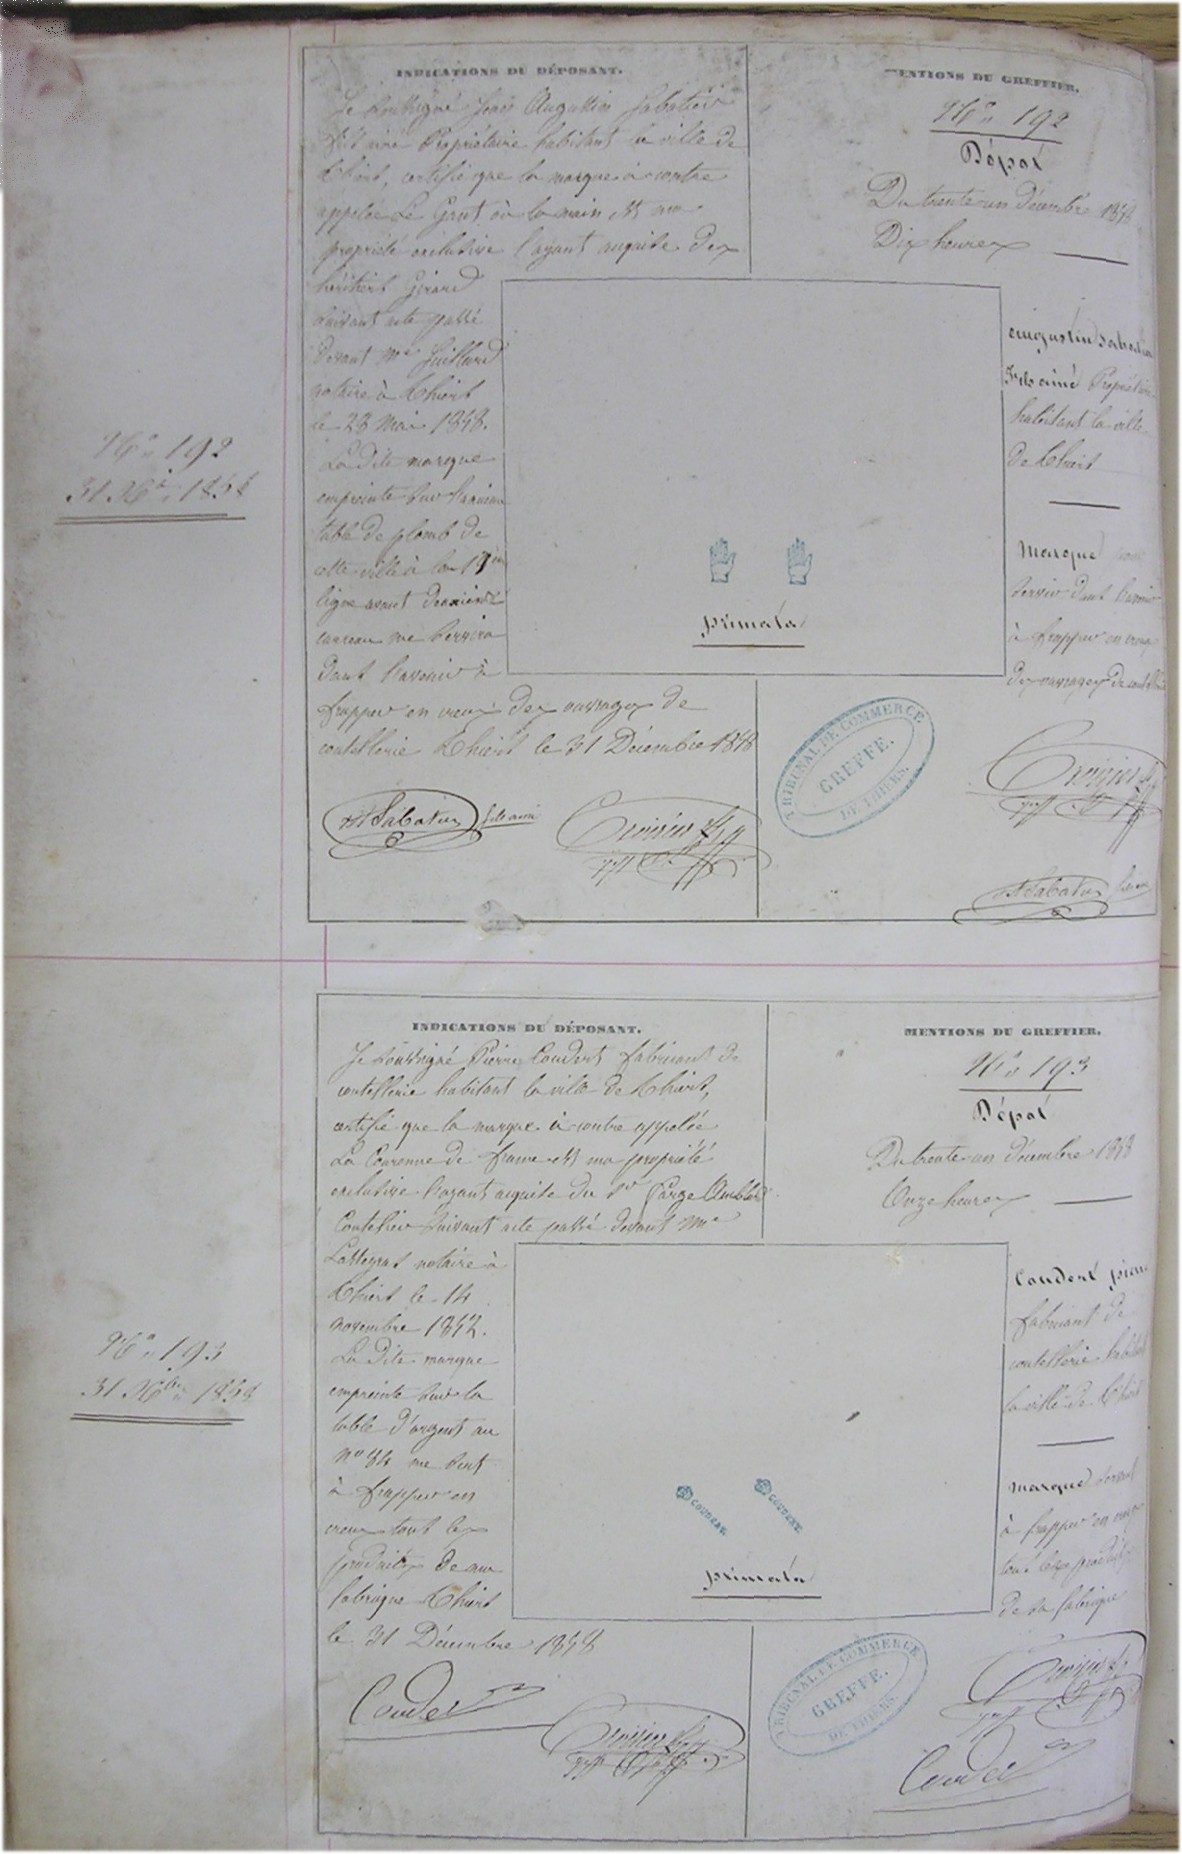 INDICATIONS DU DÉPOSANT.
Je soussigné Jean Augustin Sabatier
fils ainé Propriétaire habitant la ville de
Thiers, certifie que la marque ci contre
appelée Le Gant où la main est ma
propriété exclusive l'ayant acquise des
héritiers Girard
suivant acte passé
devant Me
notaire à Thiers
le 28 Mai 1858.
La dite marque
empreinte sur
table de plomb de
cette ville à la
ligne avant dernière
carreau me servira
dans l'avenir à
frapper en creux des ouvrages de
coutellerie Thiers le 31 Décembre 1858
A Sabatier fils ainé
MENTIONS DU GREFFIER.
No 192
Dépôt
Du trente un Décembre 1858
Dix heures
augustin Sabatier
Fils ainé Propriétaire
habitant la ville
de Thiers
Marque pour
servir dans l'avenir
à frapper en creux
des ouvrages de coutellerie
primata
TRIBUNAL DE COMMERCE
GREFFE.
DE THIERS.
A Sabatier
No 192
31 Xbre 1858
INDICATIONS DU DÉPOSANT.
Je soussigné Pierre Coudert fabricant de
coutellerie habitant la ville de Thiers,
certifie que la marque ci contre appelée
La Couronne de france est ma propriété
exclusive l'ayant acquise du Sr
Coutelier suivant acte passé devant Me
notaire à
Thiers le 14
novembre 1842.
La dite marque
empreinte sur la
table d'argent au
no 84 me sert
à frapper en
creux tous les
produits de ma
fabrique Thiers
le 31 Décembre 1858
Coudert
MENTIONS DU GREFFIER.
No 193
Dépôt
Du trente un décembre 1858
Onze heures
Coudert pierre
fabricant de
coutellerie habitant
la ville de Thiers
marque servant
à frapper en creux
tous les produits
de sa fabrique
COUDERT
COUDERT
primata
TRIBUNAL DE COMMERCE
GREFFE.
DE THIERS.
Coudert
No 193
31 Xbre 1858